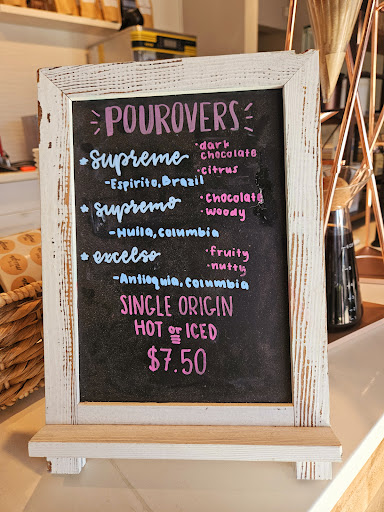 POUROVERS
* supreme
• dark chocolate
• citrus
-Espirito, Brazil
* supremo
• Chocolate
• woody
-Huila, Columbia
* excelso
• fruity
• nutty
-Antioquia, Columbia
SINGLE ORIGIN
HOT or ICED
$7.50